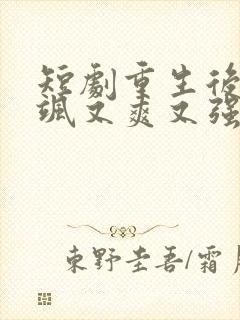 短劇重生後
颯又爽又强
東野圭吾/霜月